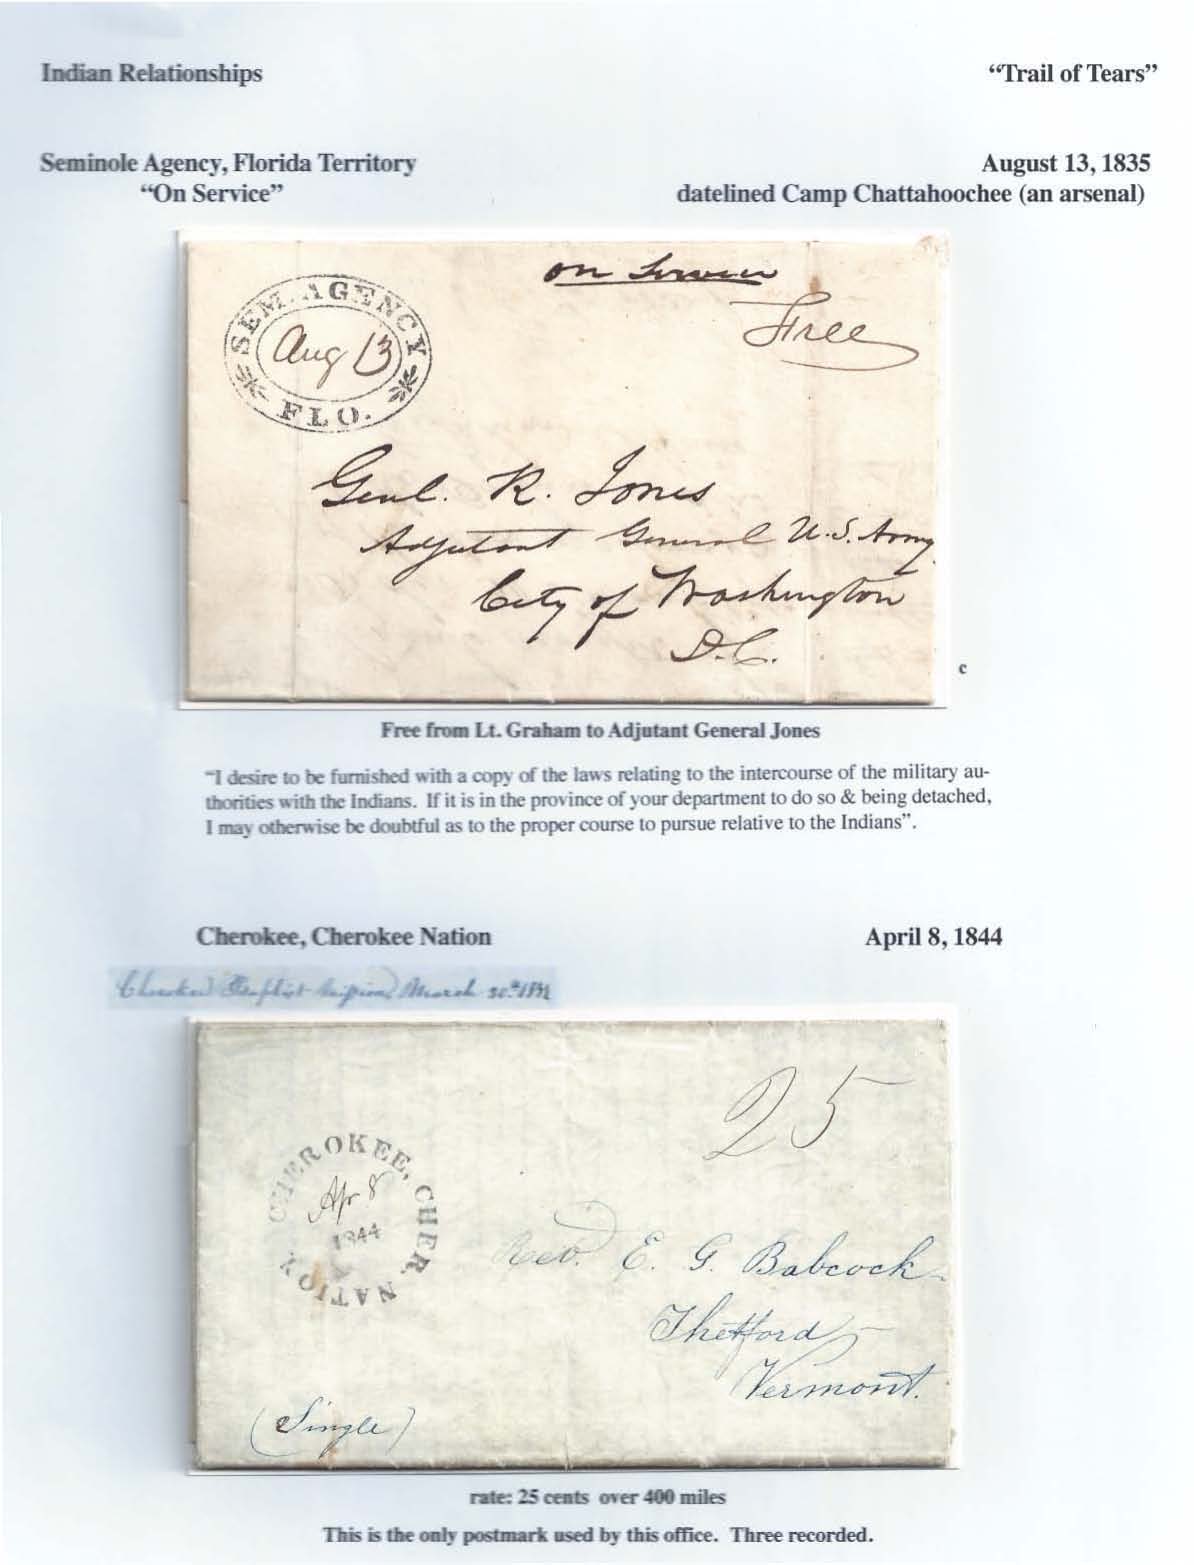 Indian Relationships
“Trail of Tears”
Seminole Agency, Florida Territory
August 13, 1835
“On Service”
datelined Camp Chattahoochee (an arsenal)
on Service
Free
SEM. AGENCY
Aug 13
FLO.
Genl. R. Jones
Adjutant General U.S. Army
City of Washington
D.C.
c
Free from Lt. Graham to Adjutant General Jones
“I desire to be furnished with a copy of the laws relating to the intercourse of the military au-
thorities with the Indians. If it is in the province of your department to do so & being detached,
I may otherwise be doubtful as to the proper course to pursue relative to the Indians”.
Cherokee, Cherokee Nation
April 8, 1844
Cherokee Baptist Mission March 30th
25
CHEROKEE, CHER. NATION
Apr 8
1844
Rev. E. G. Babcock
Thetford
Vermont.
(Single)
rate: 25 cents over 400 miles
This is the only postmark used by this office. Three recorded.